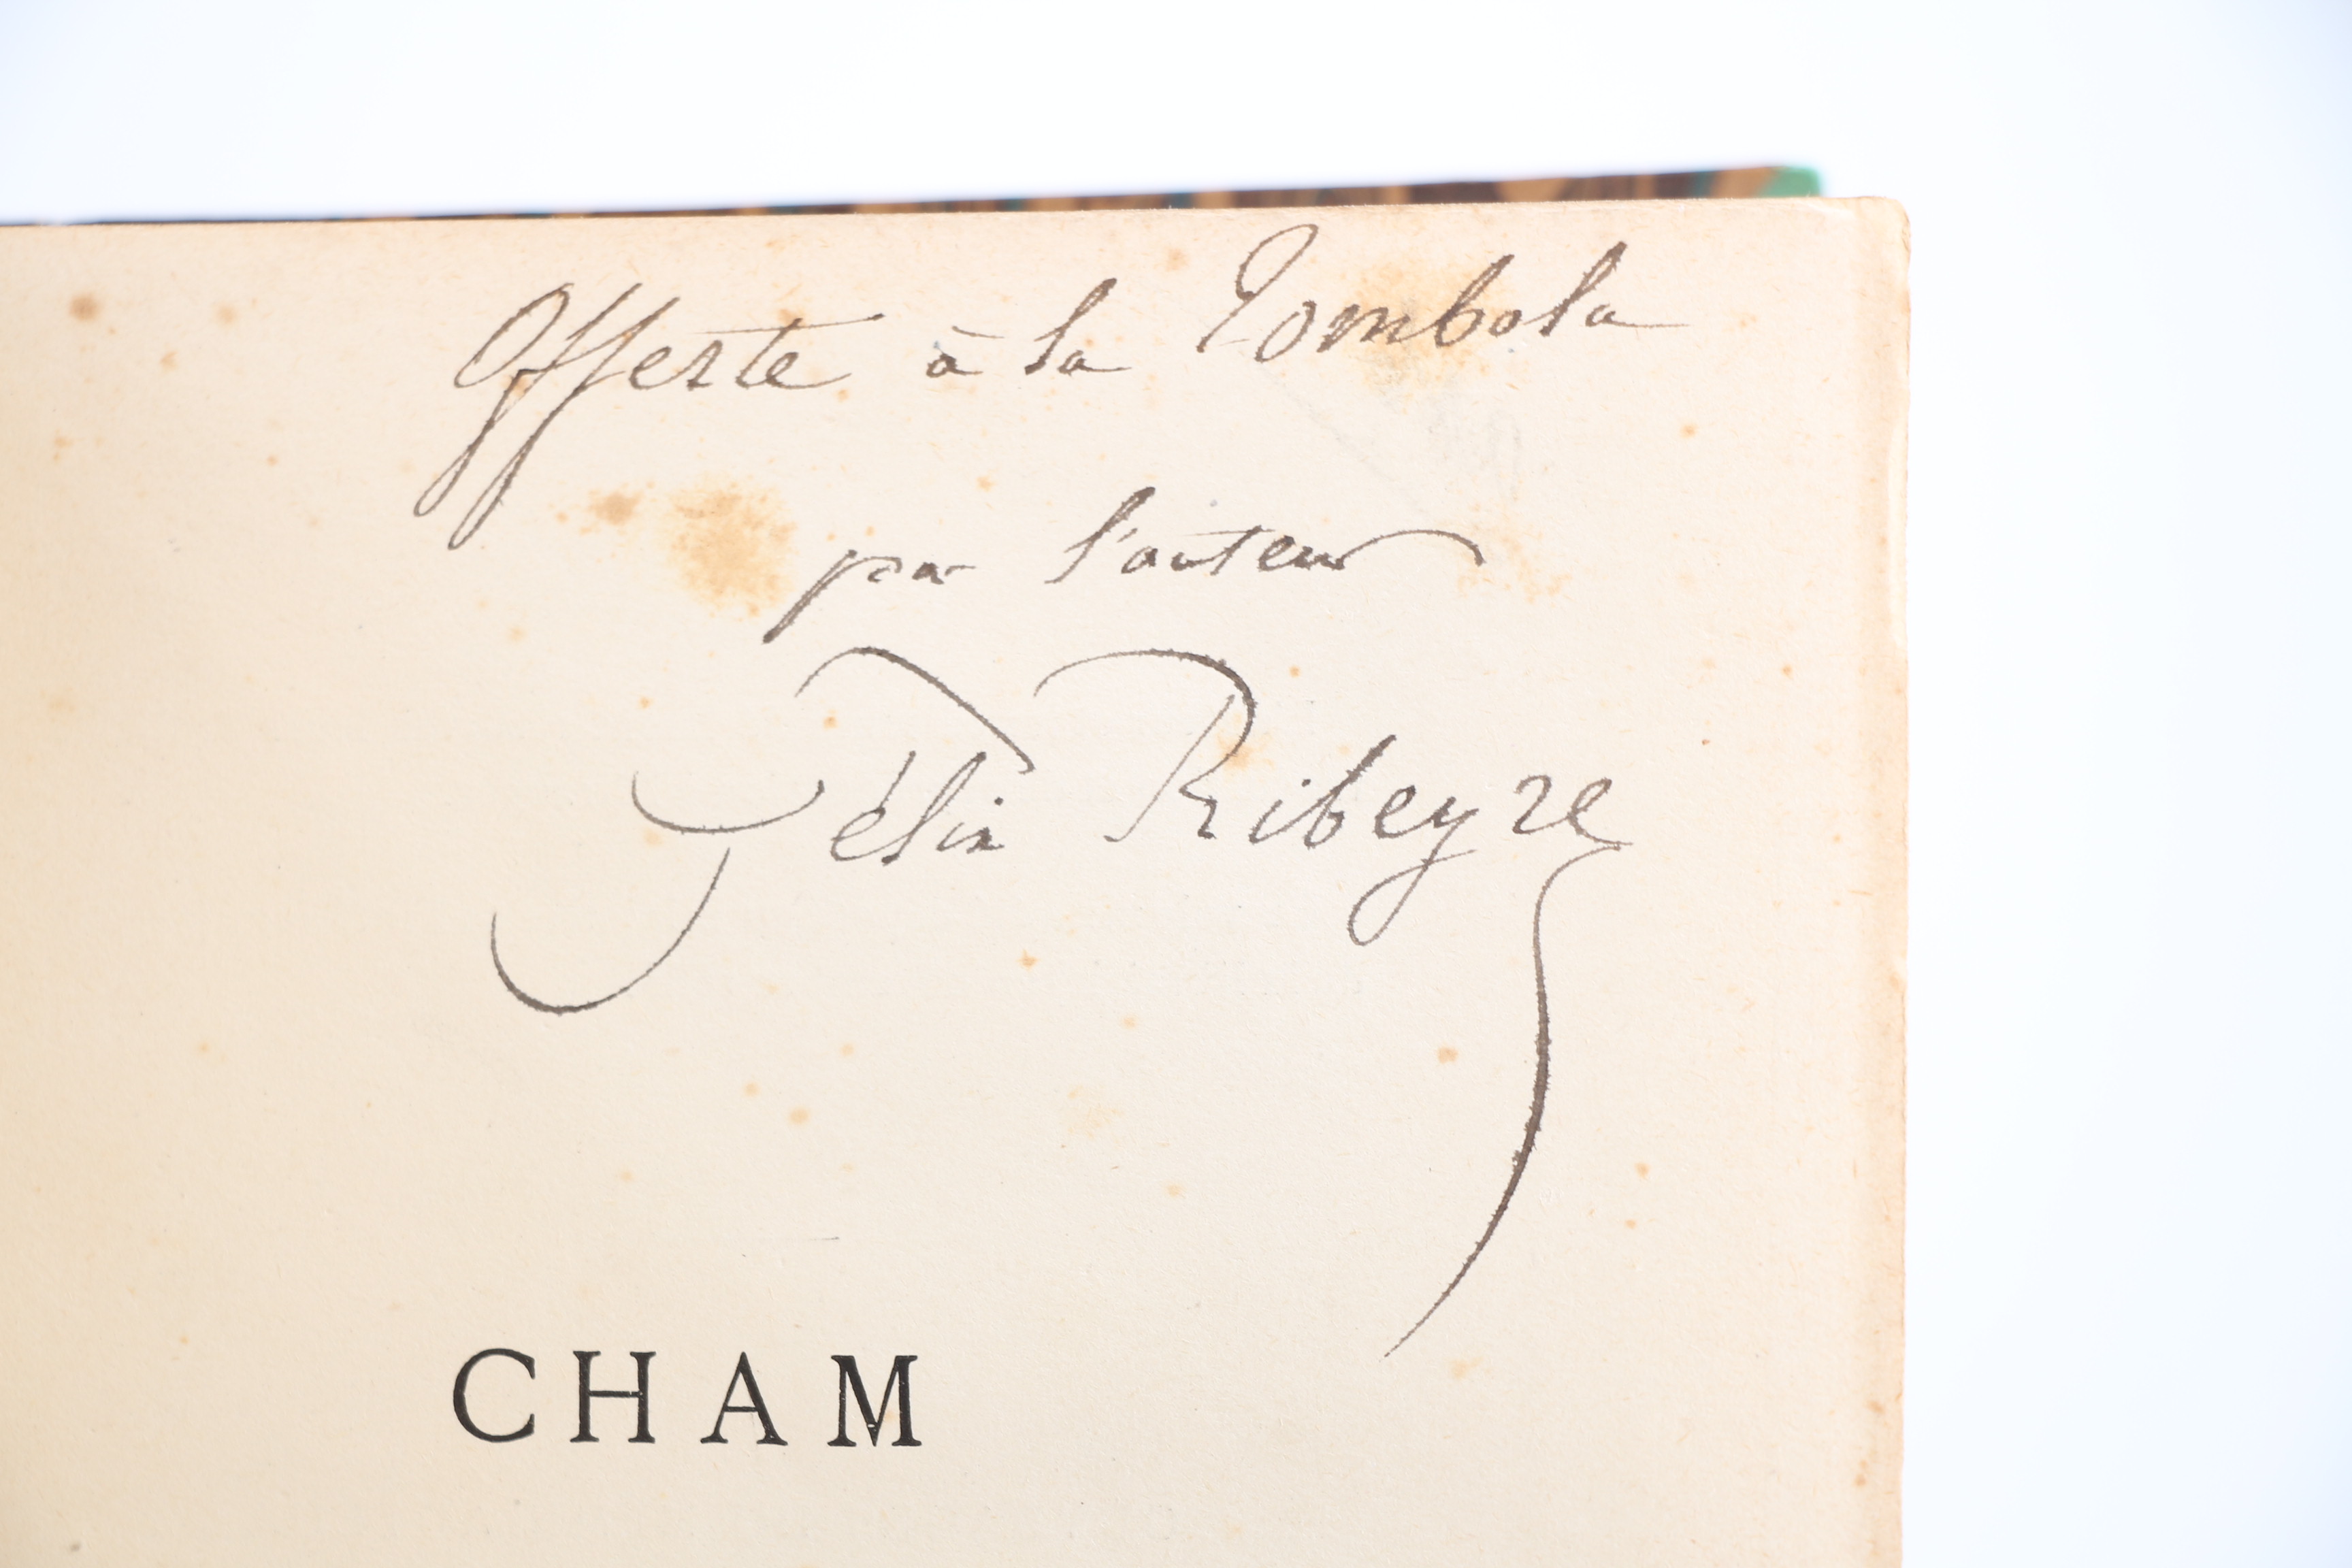 Offerte à la Tombola
par l'auteur
Félix Ribeyre
CHAM